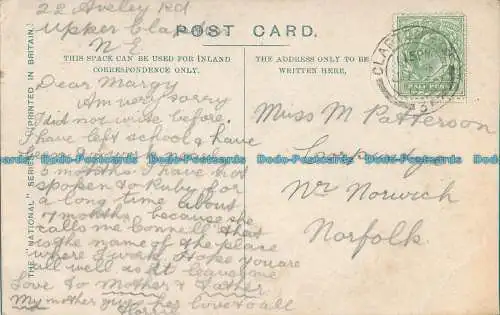 22 Aveley Rd
Upper Clapton
N E
POST CARD.
THIS SPACE CAN BE USED FOR INLAND
CORRESPONDENCE ONLY.
THE ADDRESS ONLY TO BE
WRITTEN HERE,
THE "NATIONAL" SERIES
PRINTED IN BRITAIN.
HALF PENNY
Dear Margy
Am very sorry
I did not write before.
I have left school & have
been
5 months. I have not
spoken to Ruby for
a long time about
7 months because she
calls me Connell that
is the name of the place
where I work. Hope you are
all well as it leaves me
Love to Mother & Father
My mother gives her love to all
Miss M Patterson
Nr Norwich
Norfolk.
Dodo-Postcards